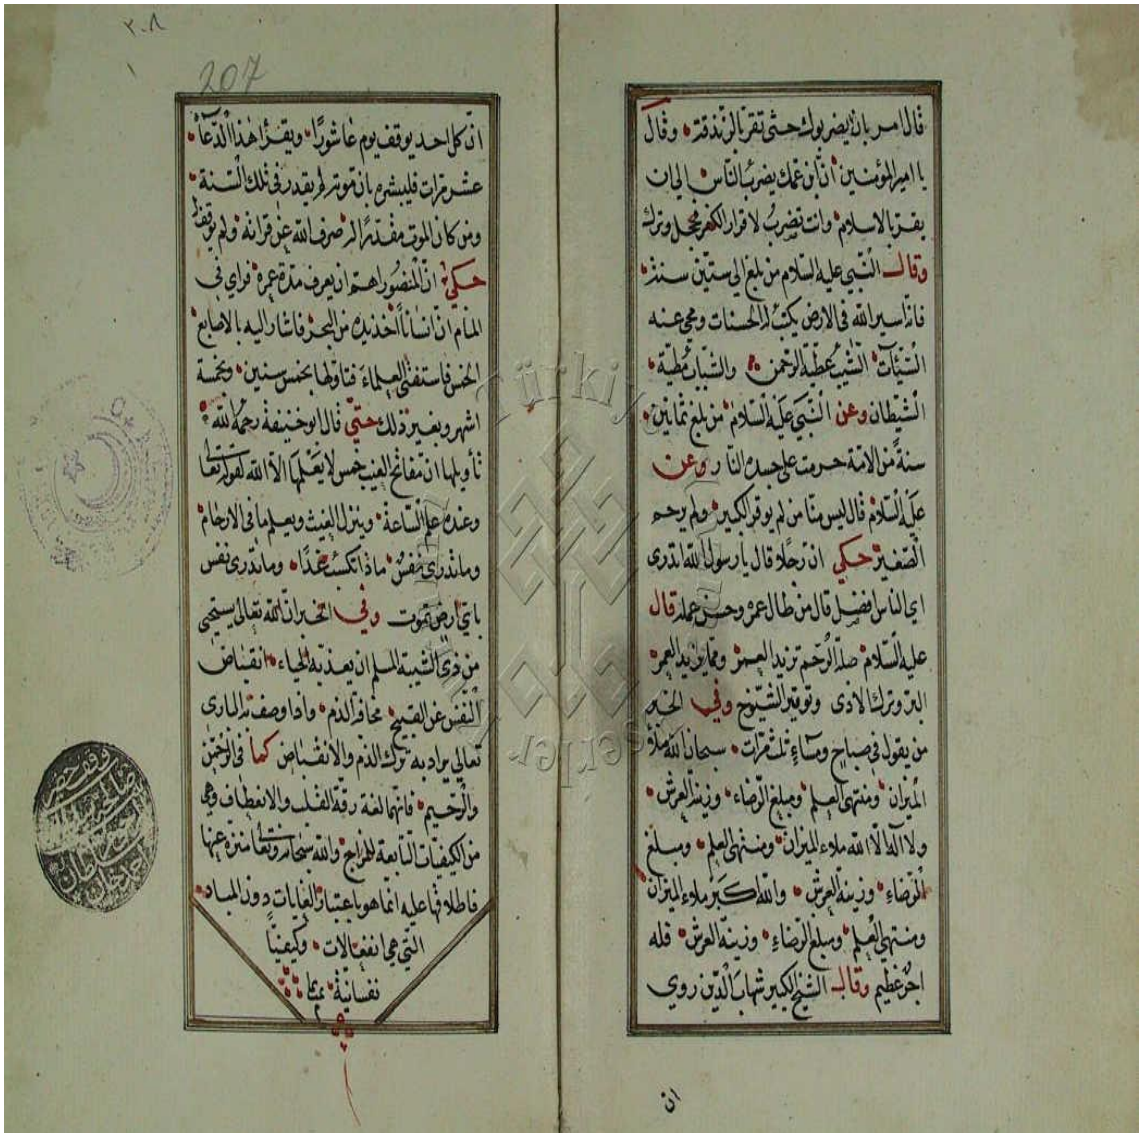 قال امر بان يضربوك حتى تقر بالزندقة وقال
يا امير المؤمنين ان ابن عمك يضرب الناس الى ان
يقر بالاسلام وانت تضرب لاقرار الكفر فخجل وترك
وقال النبي عليه السلام من بلغ الى ستين سنة
فانه اسير الله في الارض يكتب له الحسنات ومحي عنه
السيئات الشيب عطية الرحمن والشباب مطية
الشيطان وعن النبي عليه السلام من بلغ ثمانين
سنة من الامة حرمت على جسده النار وعن
عليه السلام قال ليس منا من لم يوقر الكبير ولم يرحم
الصغير حكي ان رجلا قال يا رسول الله اتدرى
اي الناس افضل قال من طال عمره وحسن عمله قال
عليه السلام صلة الرحم تزيد العمر ومما يزيد العمر
البر وترك الاذى وتوقير الشيوخ وفي الخبر
من يقول في صباح ومساء ثلث مرات سبحان الله ملأ
الميزان ومنتهى العلم ومبلغ الرضاء وزينة العرش
ولا اله الا الله ملاء الميزان ومنتهى العلم ومبلغ
الرضاء وزينة العرش والله اكبر ملاء الميزان
ومنتهى العلم ومبلغ الرضاء وزينة العرش فله
اجر عظيم وقال الشيخ الكبير شهاب الدين روي
ان
٢٠٨
207
ان كل احد يوقف يوم عاشورا ويقرأ هذا الدعاء
عشر مرات فليبشره بان موته لم يقدر في تلك السنة
ومن كان الموت مقدرا له صرف الله عن قرائة ولم يوقف
حكي ان المنصور اهتم ان يعرف مدة عمره فراى في
المنام ان انسانا اخذ يده من البحر فاشار اليه بالاصابع
الخمس فاستفتى العلماء فتاولها بخمس سنين وبخمسة
اشهر وبغير ذلك حتى قال ابو حنيفة رحمه الله
تأويلها ان مفاتح الغيب خمس لا يعلمها الا الله لقوله تعالى
وعنده علم الساعة وينزل الغيث ويعلم ما في الارحام
وما تدرى نفس ماذا تكسب غدا وما تدرى نفس
باي ارض تموت وفي الخبر ان الله تعالى يستحيى
من ذي الشيبة المسلم ان يعذبه الحياء انقباض
النفس عن القبيح مخافة الذم واذا وصف به البارى
تعالى يراد به ترك الذم والانقباض كما في الرحمن
والرحيم فانهما لغة رقة القلب والانعطاف وهي
من الكيفيات التابعة للمزاج والله سبحانه وتعالى منزه عنها
فاطلاقها عليه انما هو باعتبار الغايات دون المباد
التي هي انفعالات وكيفيتا
نفسانية تم